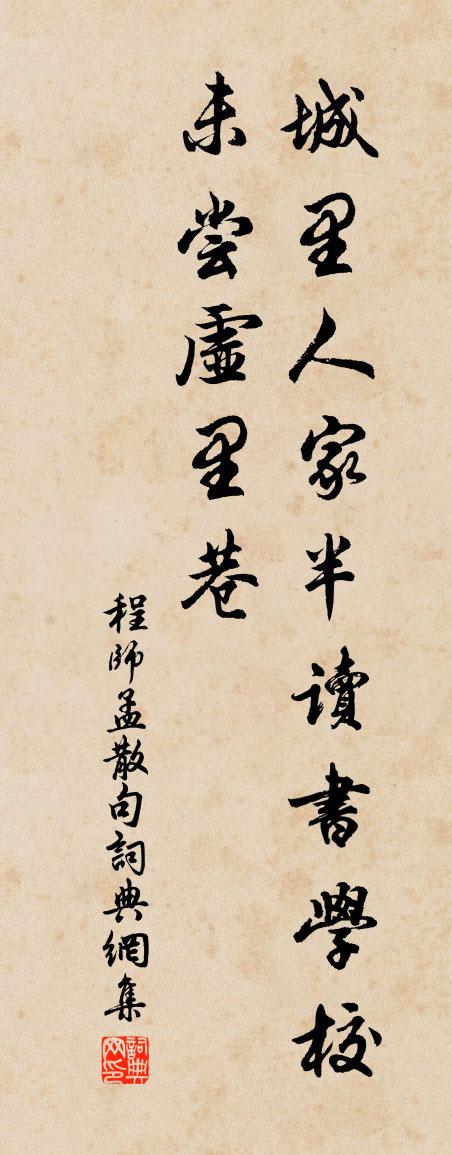 城里人家半讀書學校
未尝虛里巷
程師孟散句詞典網集
詞典网印